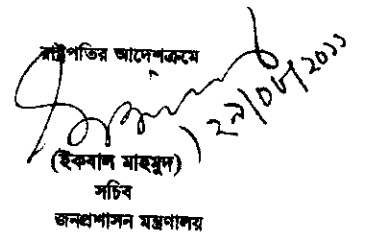 রাষ্ট্রপতির আদেশক্রমে
২৯/০৮/২০১১
(ইকবাল মাহমুদ)
সচিব
জনপ্রশাসন মন্ত্রণালয়